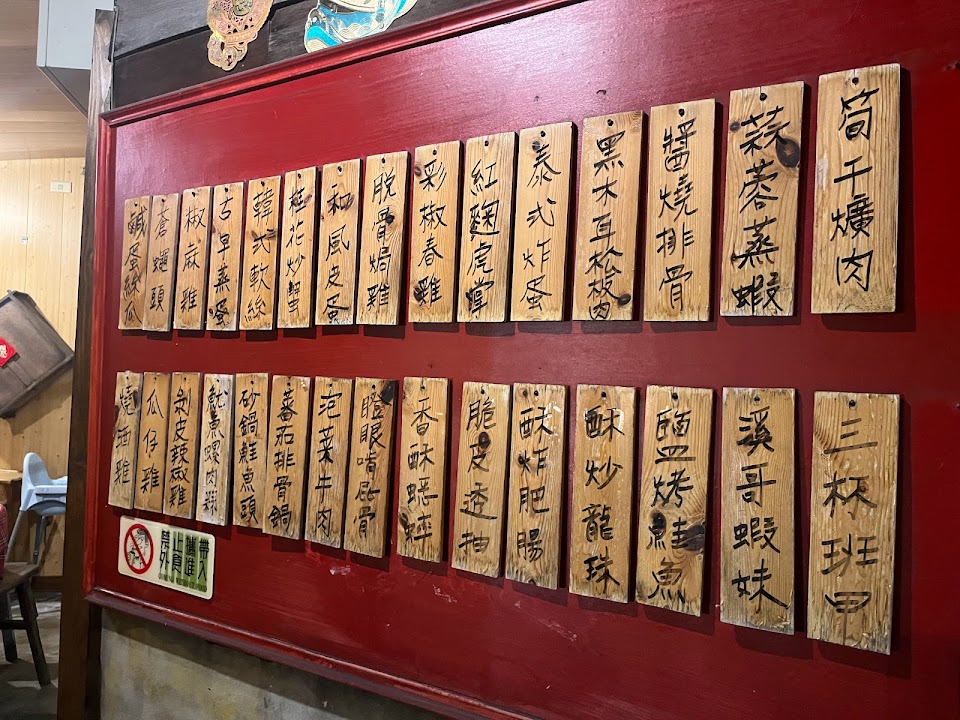 筍干爌肉
蒜蓉蒸蝦
醬燒排骨
黑木耳松板肉
泰式炸蛋
紅麴虎掌
彩椒春雞
脫骨焗雞
和風皮蛋
桂花炒蟹
韓式軟絲
古早蒸蛋
椒麻雞
蒼蠅頭
鹹蛋絲瓜
三杯班甲
溪哥蝦妹
鹽烤鮭魚
酥炒龍珠
酥炸肥腸
脆皮透抽
香酥蟋蟀
瞪眼啃屁骨
泡菜牛肉
蕃茄排骨鍋
砂鍋鮭魚頭
魷魚螺肉蒜
剝皮辣椒雞
瓜仔雞
燒酒雞
禁止攜帶
外食進入